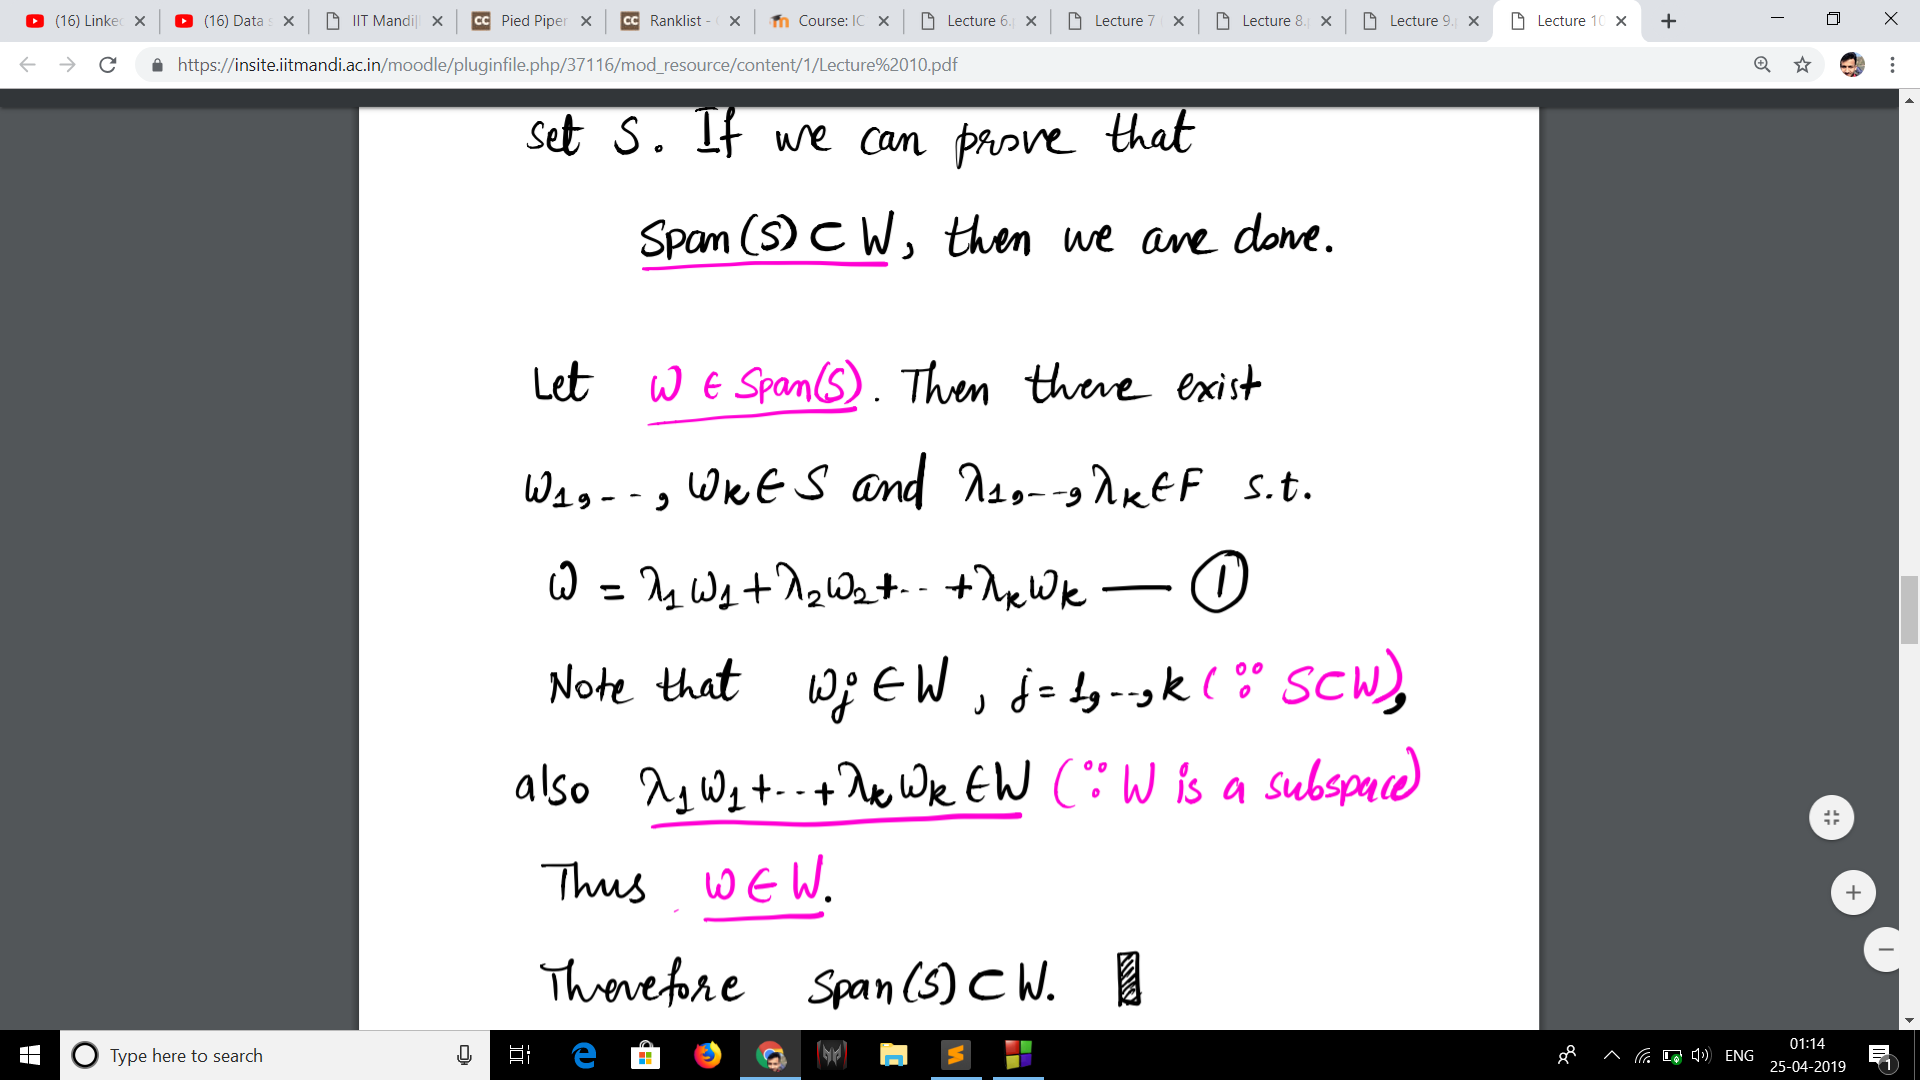 (16) Linke
(16) Data s
IIT Mandi|
CC Pied Piper
CC Ranklist -
Course: IC
Lecture 6.p
Lecture 7
Lecture 8.p
Lecture 9.p
Lecture 10
https://insite.iitmandi.ac.in/moodle/pluginfile.php/37116/mod_resource/content/1/Lecture%2010.pdf
set S. If we can prove that
Span(S) ⊂ W, then we are done.
Let w ∈ Span(S). Then there exist
w₁,--, wₖ ∈ S and λ₁,--, λₖ ∈ F s.t.
w = λ₁w₁+λ₂w₂+-- +λₖwₖ — ①
Note that wⱼ ∈ W, j = 1,--, k (∵ S⊂W),
also λ₁w₁+--+λₖwₖ ∈ W (∵ W is a subspace)
Thus w ∈ W.
Therefore Span(S) ⊂ W.
Type here to search
ENG
01:14
25-04-2019
1